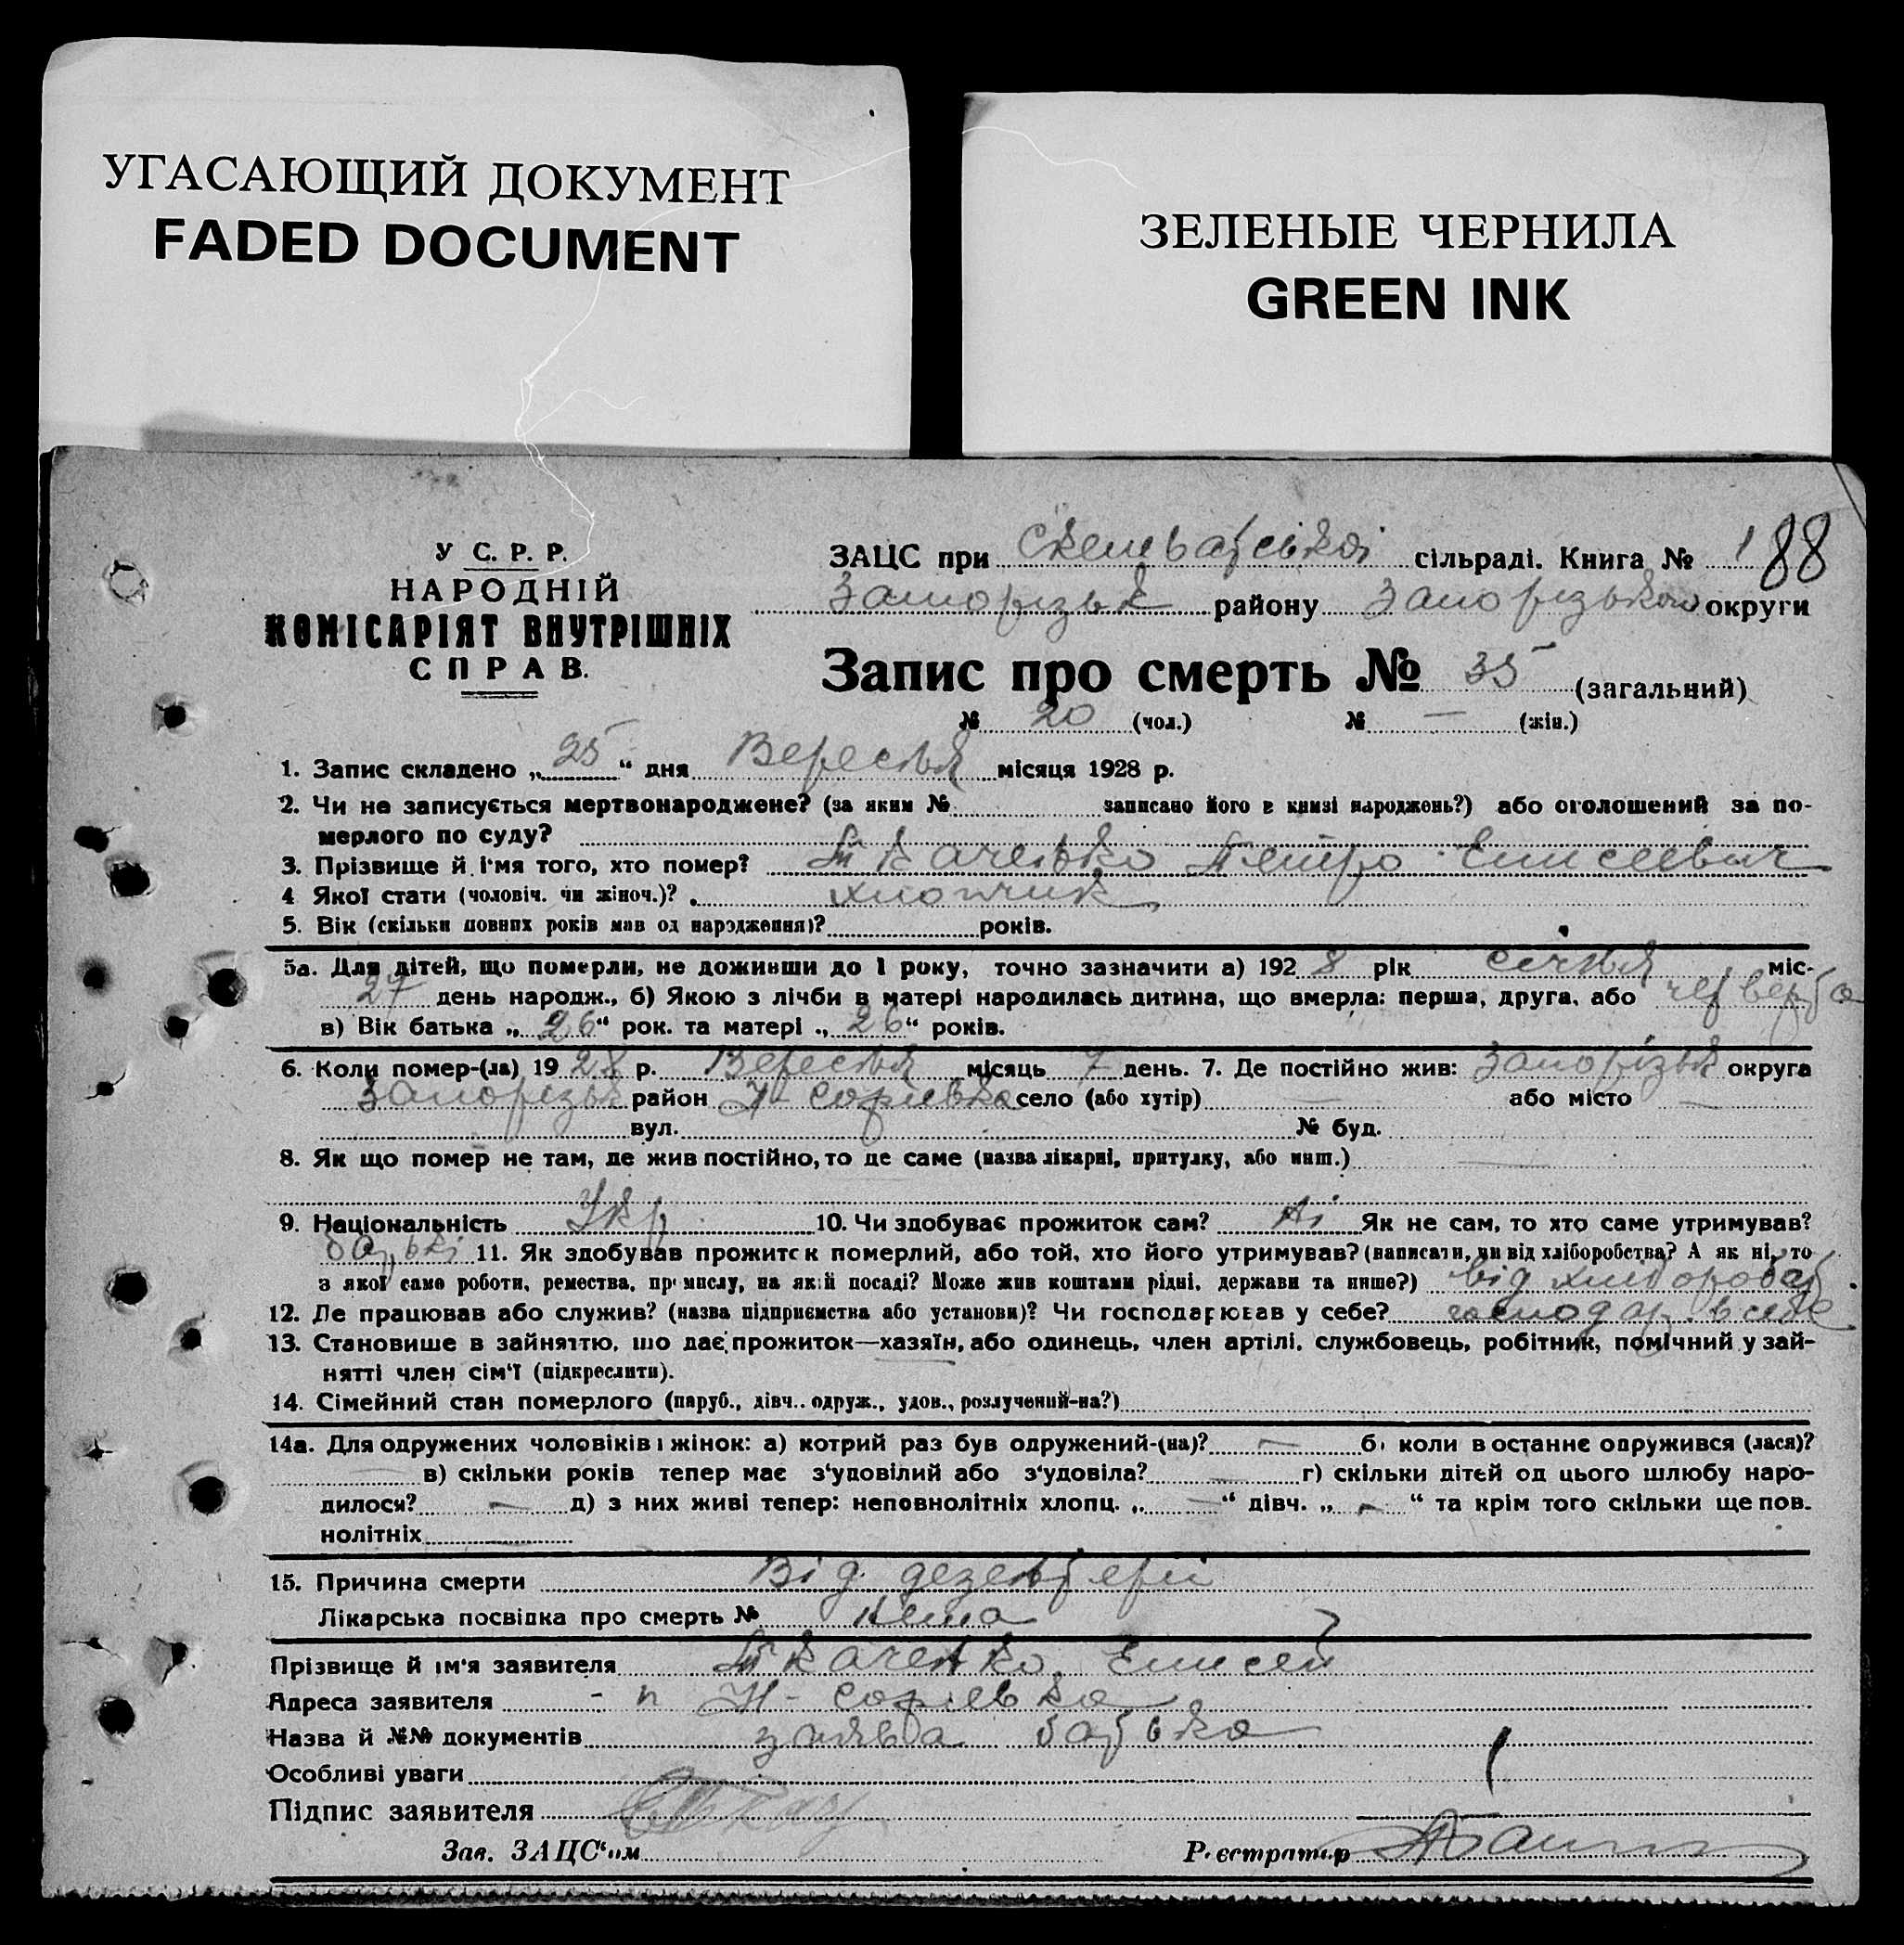 УГАСАЮЩИЙ ДОКУМЕНТ
FADED DOCUMENT
ЗЕЛЕНЫЕ ЧЕРНИЛА
GREEN INK
У С. Р. Р.
НАРОДНІЙ
КОМІСАРІЯТ ВНУТРІШНІХ
СПРАВ.
ЗАЦС при сільраді. Книга № 1 88
Запорізьк району Запорізькой округи
Запис про смерть № 35 (загальний)
№ 20 (чол.) № — (жін.)
1. Запис складено „ 25 “ дня Вересня місяця 1928 р.
2. Чи не записується мертвонароджене? (за яким № записано його в книзі народжень?) або оголошений за по-
мерлого по суду?
3. Прізвище й і'мя того, хто помер? Ткаченко Петро Елисеевич
4 Якої стати (чоловіч. чи жіноч.)? хлопчик
5. Вік (скільки повних років мав од народження)? років.
5а. Для дітей, що померли, не доживши до 1 року, точно зазначити а) 192 8 рік Січня міс-
27 день народж., б) Якою з лічби в матері народилась дитина, що вмерла: перша, друга, або четверта
в) Вік батька „ 26 “ рок. та матері „ 26 “ років.
6. Коли помер-(ла) 19 28 р. Вересня місяць 7 день. 7. Де постійно жив: Запорізьк округа
Запорізьк район село (або хутір) — або місто —
вул. № буд.
8. Як що помер не там, де жив постійно, то де саме (назва лікарні, притулку, або инш.)
9. Національність Укр. 10. Чи здобуває прожиток сам? Ні Як не сам, то хто саме утримував?
батькі 11. Як здобував прожиток померлий, або той, хто його утримував? (написати, чи від хліборобства? А як ні, то
з якої саме роботи, ремества, промислу, на якій посаді? Може жив коштами рідні, держави та инше?) від хлібороб
12. Де працював або служив? (назва підприємства або установи)? Чи господарював у себе? господар. в себе
13. Становише в зайняттю, що дає прожиток—хазяїн, або одинець, член артілі, службовець, робітник, помічний у зай-
нятті член сім'ї (підкреслити).
14. Сімейний стан померлого (паруб., дівч.. одруж., удов., розлучений-на?)
14а. Для одружених чоловіків і жінок: а) котрий раз був одружений-(на)? — б) коли востаннє одружився (лася)?
— в) скільки років тепер має з'удовілий або з'удовіла? — г) скільки дітей од цього шлюбу наро-
дилося? — д) з них живі тепер: неповнолітніх хлопц. „ — “ дівч. „ — “ та крім того скільки ще пов.
нолітніх —
15. Причина смерти Від дезентерії
Лікарська посвідка про смерть № Нема
Прізвище й ім'я заявителя Ткаченко Елисей
Адреса заявителя
Назва й №№ документів заява батька
Особливі уваги
Підпис заявителя
Зав. ЗАЦС'ом Реєстратор